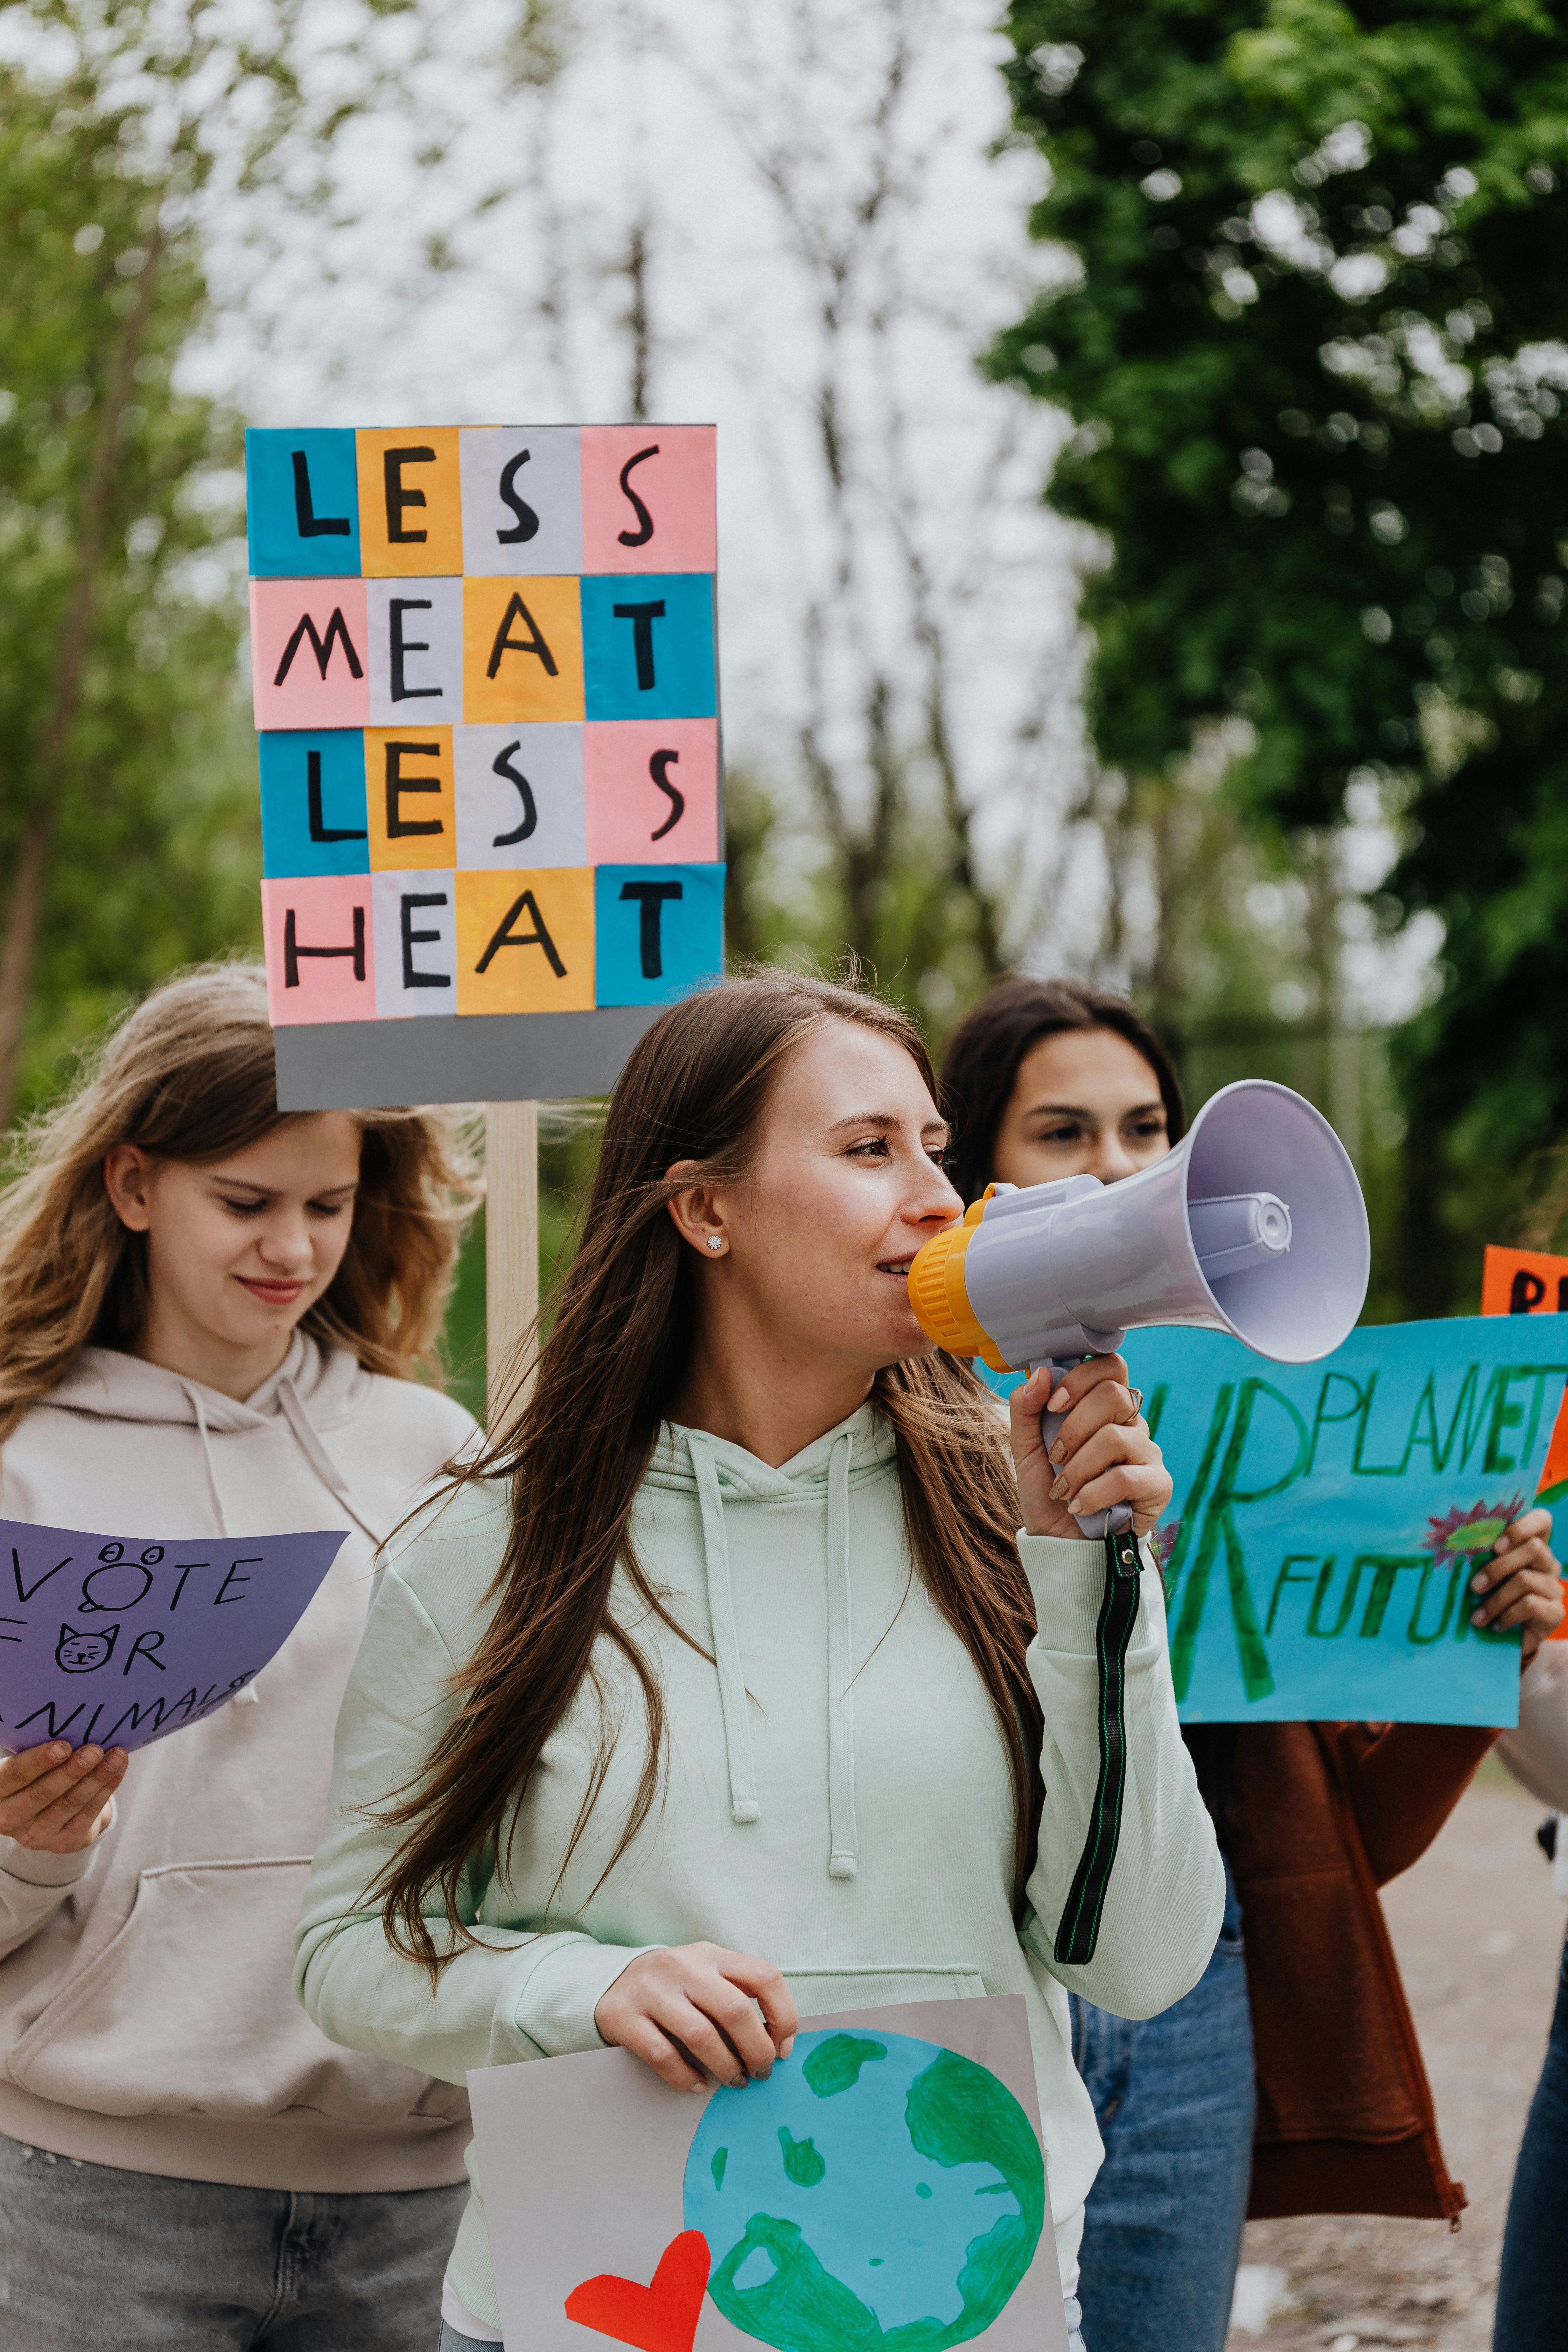 LESS
MEAT
LESS
HEAT
VOTE
FOR
ANIMALS
UR PLANET
FUTUR